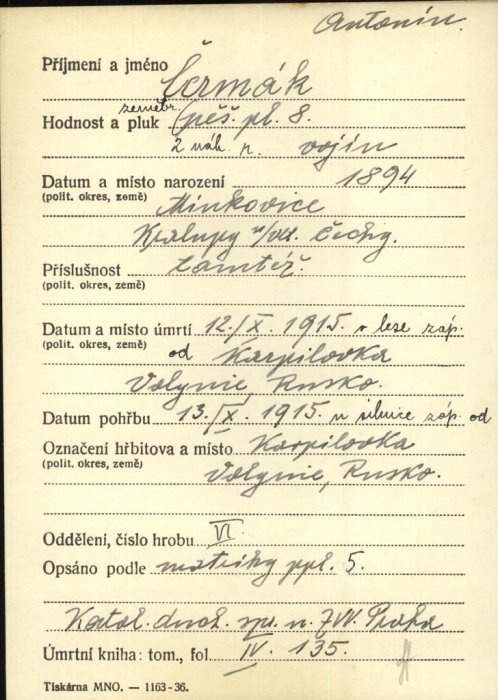 Antonín.
Příjmení a jméno Čermák
zeměbr.
Hodnost a pluk (pěš. pl. 8.
2 náh. r. vojín
Datum a místo narození 1894
(polit. okres, země) Minkovice
Kralupy n/Vlt. Čechy.
Příslušnost tamtéž.
(polit. okres, země)
Datum a místo úmrtí 12./X. 1915. v lese záp.
(polit. okres, země) od Karpilovka
Volynie, Rusko.
Datum pohřbu 13./X. 1915. u silnice záp. od
Označení hřbitova a místo Karpilovka
(polit. okres, země) Volynie, Rusko.
Oddělení, číslo hrobu VI
Opsáno podle matriky ppl. 5.
Katol. duch. spr. n. ZVV. Praha
Úmrtní kniha: tom., fol. IV. 135.
Tiskárna MNO. — 1163-36.